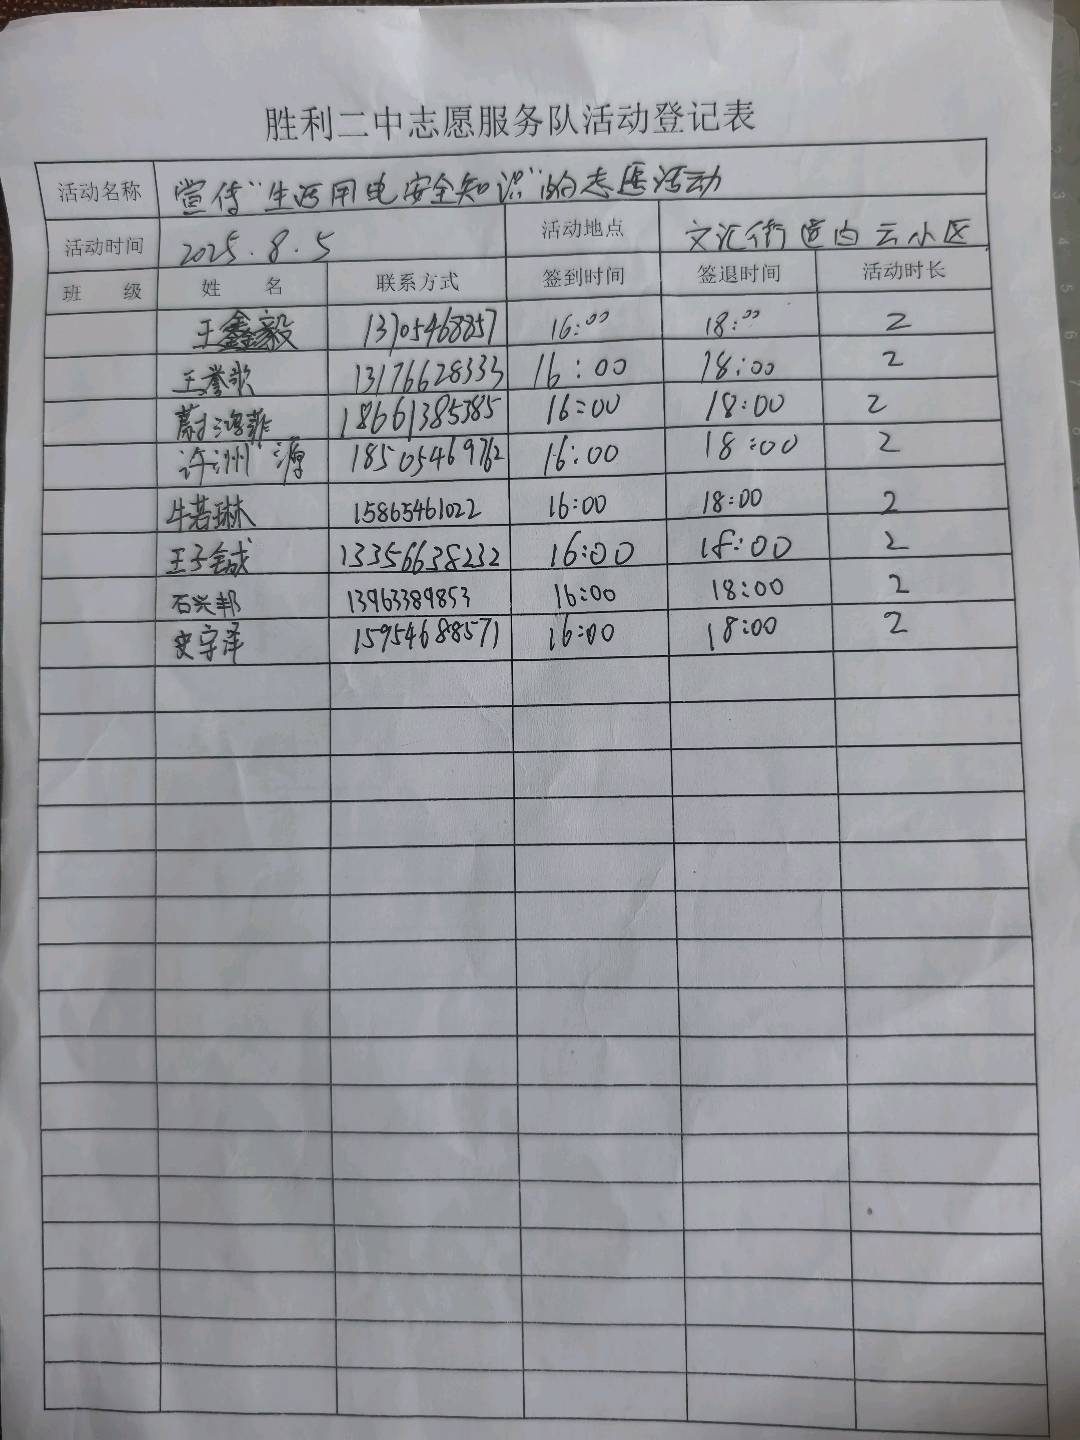 胜利二中志愿服务队活动登记表
活动名称 宣传“生活用电安全知识”的志愿活动
活动时间 2025.8.5 活动地点 文汇街道白云小区
班 级 姓 名 联系方式 签到时间 签退时间 活动时长
王鑫毅 13705468857 16:00 18:00 2
王誉歌 13176628333 16:00 18:00 2
蔚鸿菲 18661385385 16:00 18:00 2
许洲源 18505469762 16:00 18:00 2
牛若琳 15865461022 16:00 18:00 2
王子铖 13356638232 16:00 18:00 2
石兴邦 13963389853 16:00 18:00 2
史宇泽 15954688571 16:00 18:00 2